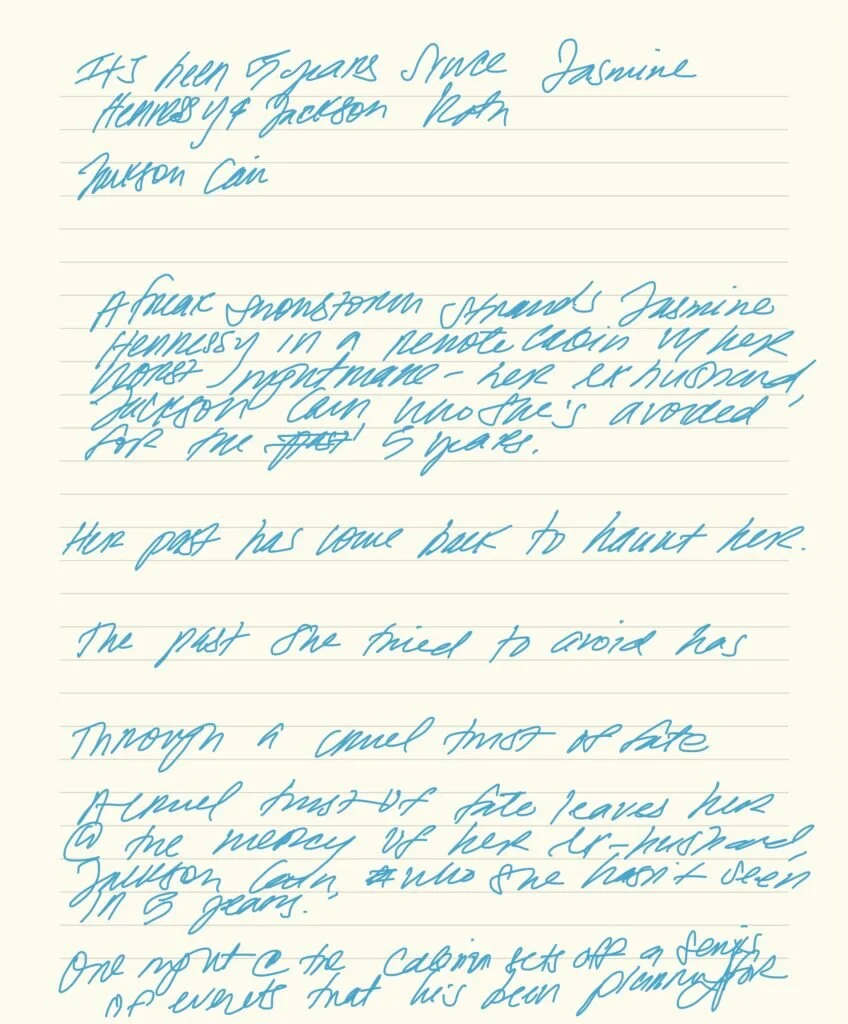 It's been 5 years since Jasmine
Hennessy & Jackson
Jackson Cain
A freak snowstorm strands Jasmine
Hennessy in a remote cabin w/ her
worst nightmare - her ex husband,
Jackson Cain who she's avoided
for the past 5 years.
Her past has come back to haunt her.
The past she tried to avoid has
Through a cruel twist of fate
A cruel twist of fate leaves her
@ the mercy of her ex-husband,
Jackson Cain, who she hasn't seen
in 5 years.
One night @ the cabin sets off a series
of events that his been planning for